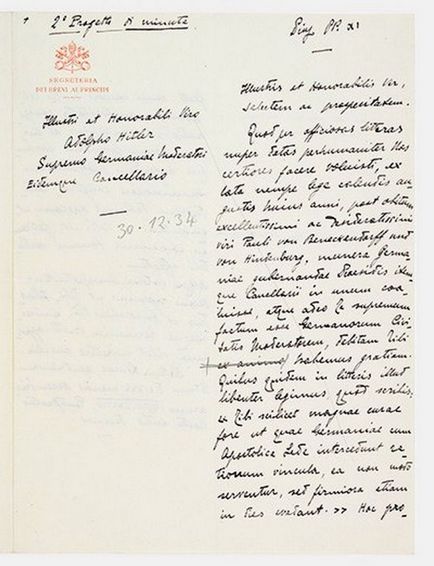 + 2° Progetto di minuta
SEGRETERIA
DEI BREVI AI PRINCIPI
Illustri et Honorabili Viro
Adolpho Hitler
Supremo Germaniae Moderatori
Eidemque Cancellario
30.12.34
Pius PP. XI
Illustris et Honorabilis Vir,
salutem ac prosperitatem.
Quod per officiosas litteras
nuper datas perhumaniter Nos
certiores facere voluisti, ex
lata nempe lege calendis au-
gustis huius anni, post obitum
excellentissimi ac desideratissimi
viri Pauli von Beneckendorff und
von Hindenburg, munera Germa-
niae gubernandae Praesidis item-
que Cancellarii in unum coa-
luisse, atque adeo Te supremum
factum esse Germanorum Civi-
tatis Moderatorem, debitam Tibi
ex animo habemus gratiam.
Quibus quidem in litteris illud
libenter legimus quod scribis,
Tibi scilicet magnae curae
fore ut quae Germaniae cum
Apostolica Sede intercedunt ne-
cessitudinum vincula, ea non modo
serventur, sed firmiora etiam
in dies evadant. >> Hoc pro-